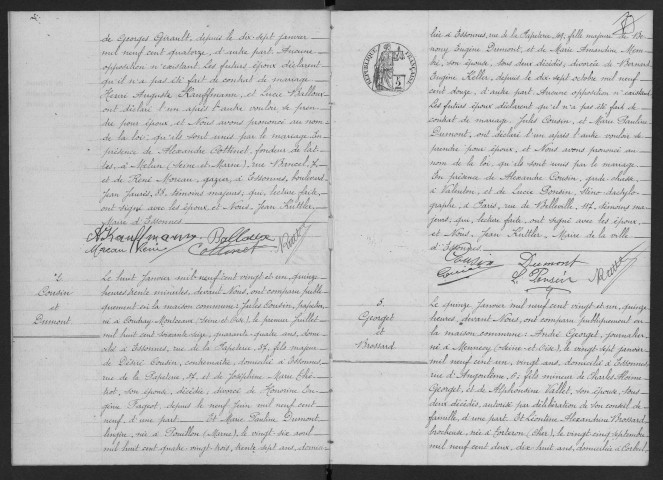 de Georges Girault, depuis le dix-sept janvier
mil neuf cent quatorze, d'autre part. Aucune
opposition n'existant. Les futurs époux déclarent
qu'il n'a pas été fait de contrat de mariage.
Henri Auguste Kauffmann, et Lucie Balloux
ont déclaré l'un après l'autre vouloir se pren-
dre pour époux, et Nous avons prononcé au nom
de la loi, qu'ils sont unis par le mariage. En
présence de Alexandre Cottinet, fondeur de lat-
tes, à Melun (Seine et Marne), rue 7,
et de René Moreau, gazier, à Essonnes, boulevard
Jean Jaurès, 38, témoins majeurs, qui, lecture faite,
ont signé avec les époux et Nous, Jean Kuttler,
Maire d'Essonnes.
AKauffmann Balloux
Moreau René Cottinet
4.
Cousin
et
Dumont
Le huit Janvier mil neuf cent vingt et un, quinze
heures trente minutes, devant Nous, ont comparu publi-
quement en la maison commune : Jules Cousin, papetier,
né à Coudray-Montceaux (Seine et Oise), le premier Juillet
mil huit cent soixante seize, quarante quatre ans, domi-
cilié à Essonnes, rue de la Papeterie, 57, fils majeur
de Désiré Cousin, contremaître, domicilié à Essonnes,
rue de la Papeterie, 57 et de Joséphine Marie
son épouse, décédée, divorcé de Honorine Eu-
génie depuis le neuf Juin mil neuf cent
neuf, d'une part. Et Marie Pauline Dumont
lingère, née à Pouillon (Marne), le vingt six août
mil huit cent quatre vingt trois, trente sept ans, domici-
liée à Essonnes, rue de la Papeterie, 49, fille majeure de
Eugène Dumont, et de Marie Amandine
son épouse, tous deux décédés, divorcée de Bernard
Eugène Keller, depuis le dix sept octobre mil neuf
cent douze, d'autre part. Aucune opposition n'existant.
Les futurs époux déclarent qu'il n'a pas été fait de
contrat de mariage. Jules Cousin, et Marie Pauline
Dumont, ont déclaré l'un après l'autre vouloir se
prendre pour époux, et Nous avons prononcé au
nom de la loi, qu'ils sont unis par le mariage.
En présence de Alexandre Cousin, garde-chasse,
à Valenton, et de Lucie Ponsin, sténo-dactylo-
graphe, à Paris, rue de Belleville, 117, témoins ma-
jeurs, qui, lecture faite, ont signé avec les époux,
et Nous, Jean Kuttler, Maire de la ville
d'Essonnes.
Cousin Dumont
Cousin L. Ponsin
RÉPUBLIQUE FRANÇAISE
5.
Georget
et
Brossard
Le quinze Janvier mil neuf cent vingt et un, quinze
heures, devant Nous, ont comparu publiquement en
la maison commune : André Georget, journalier,
né à Mennecy (Seine et Oise), le vingt sept janvier
mil neuf cent un, vingt ans, domicilié à Essonnes,
rue d'Angoulême, 6, fils mineur de Charles
Georget, et de Alphonsine Vallet, son épouse, tous
deux décédés, autorisé par délibération de son conseil de
famille, d'une part. Et Léontine Alexandrine Brossard,
brocheuse, née à (Cher), le vingt cinq septembre
mil neuf cent deux, dix huit ans, domiciliée à Corbeil,